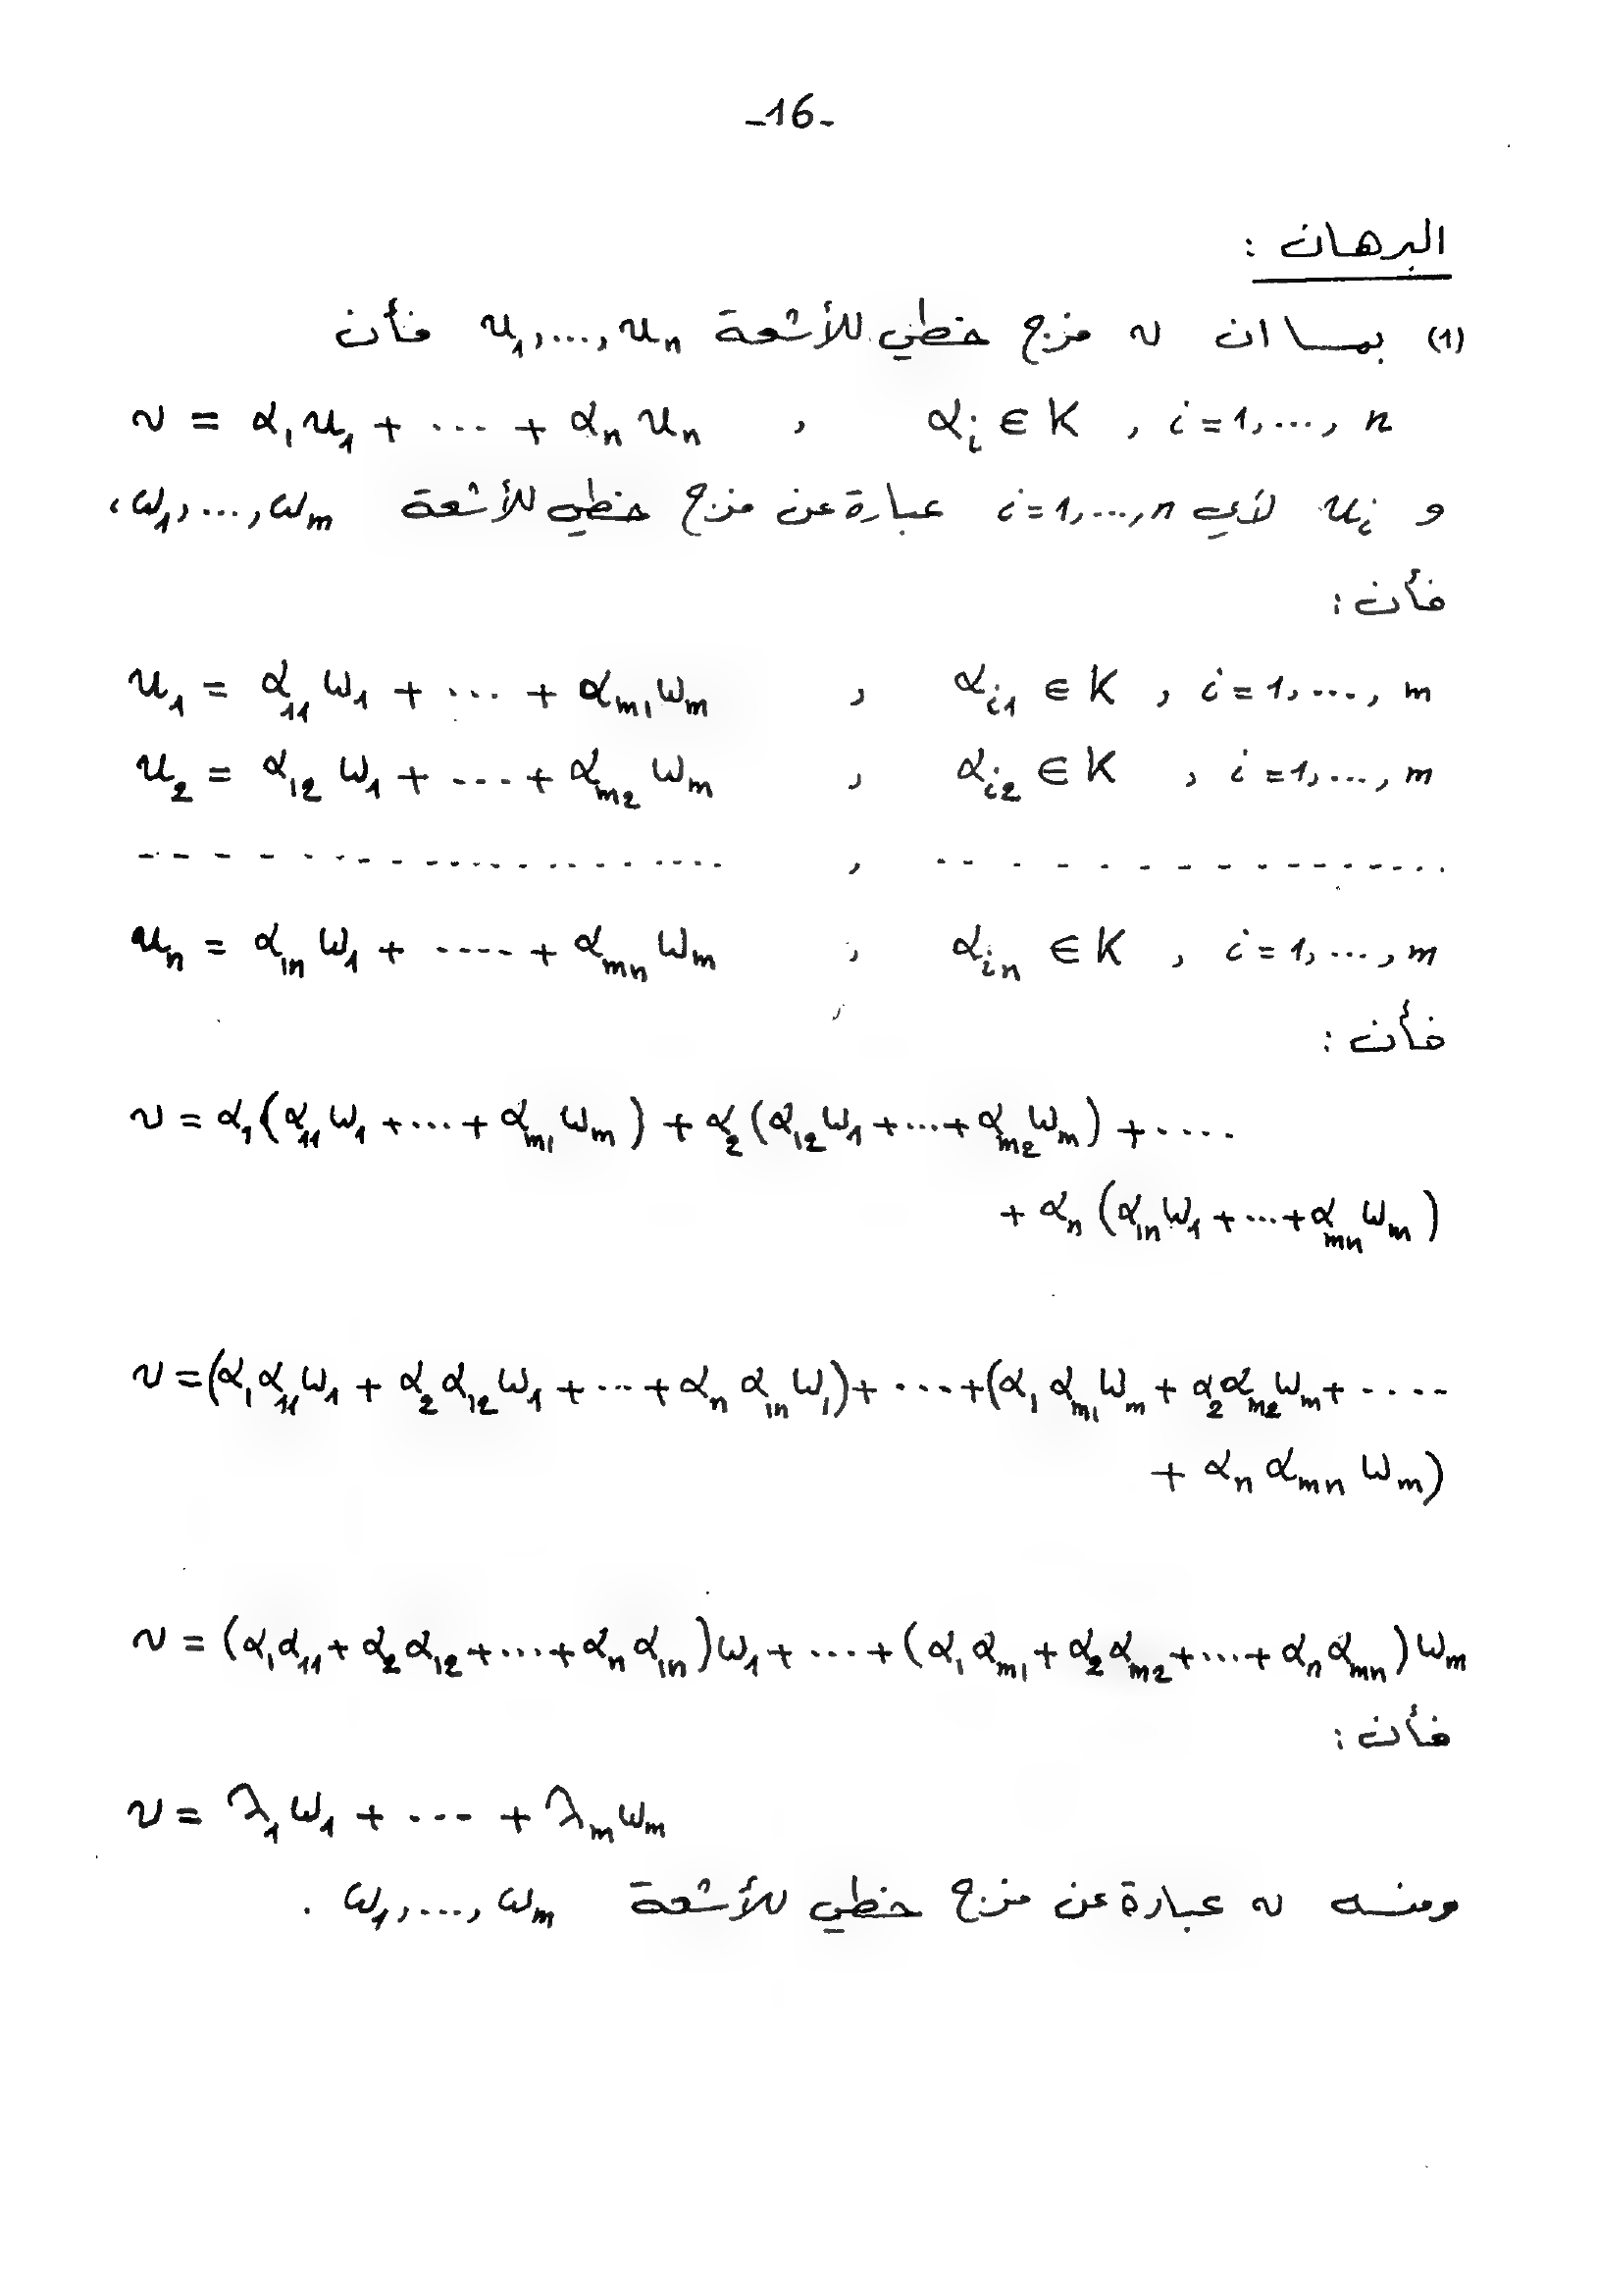 -16-
البرهان :
(1) بما ان v مزج خطي للأشعة u₁,...,uₙ فأن
v = α₁u₁ + ... + αₙuₙ , αᵢ ∈ K , i=1,...,n
و uᵢ لأي i=1,...,n عبارة عن مزج خطي للأشعة ω₁,...,ωₘ ،
فأن :
u₁ = α₁₁ω₁ + ... + αₘ₁ωₘ , αᵢ₁ ∈ K , i=1,...,m
u₂ = α₁₂ω₁ + ... + αₘ₂ωₘ , αᵢ₂ ∈ K , i=1,...,m
- - - - - - - - - - - - - - - - - - , - - - - - - - - - - - - - - -
uₙ = α₁ₙω₁ + .... + αₘₙωₘ , αᵢₙ ∈ K , i=1,...,m
فأن :
v = α₁(α₁₁ω₁ + ... + αₘ₁ωₘ) + α₂(α₁₂ω₁ + ... + αₘ₂ωₘ) + ....
+ αₙ(α₁ₙω₁ + ... + αₘₙωₘ)
v = (α₁α₁₁ω₁ + α₂α₁₂ω₁ + ... + αₙα₁ₙω₁) + ... + (α₁αₘ₁ωₘ + α₂αₘ₂ωₘ + ....
+ αₙαₘₙωₘ)
v = (α₁α₁₁ + α₂α₁₂ + ... + αₙα₁ₙ)ω₁ + ... + (α₁αₘ₁ + α₂αₘ₂ + ... + αₙαₘₙ)ωₘ
فأن :
v = λ₁ω₁ + ... + λₘωₘ
ومنه v عبارة عن مزج خطي للأشعة ω₁,...,ωₘ .